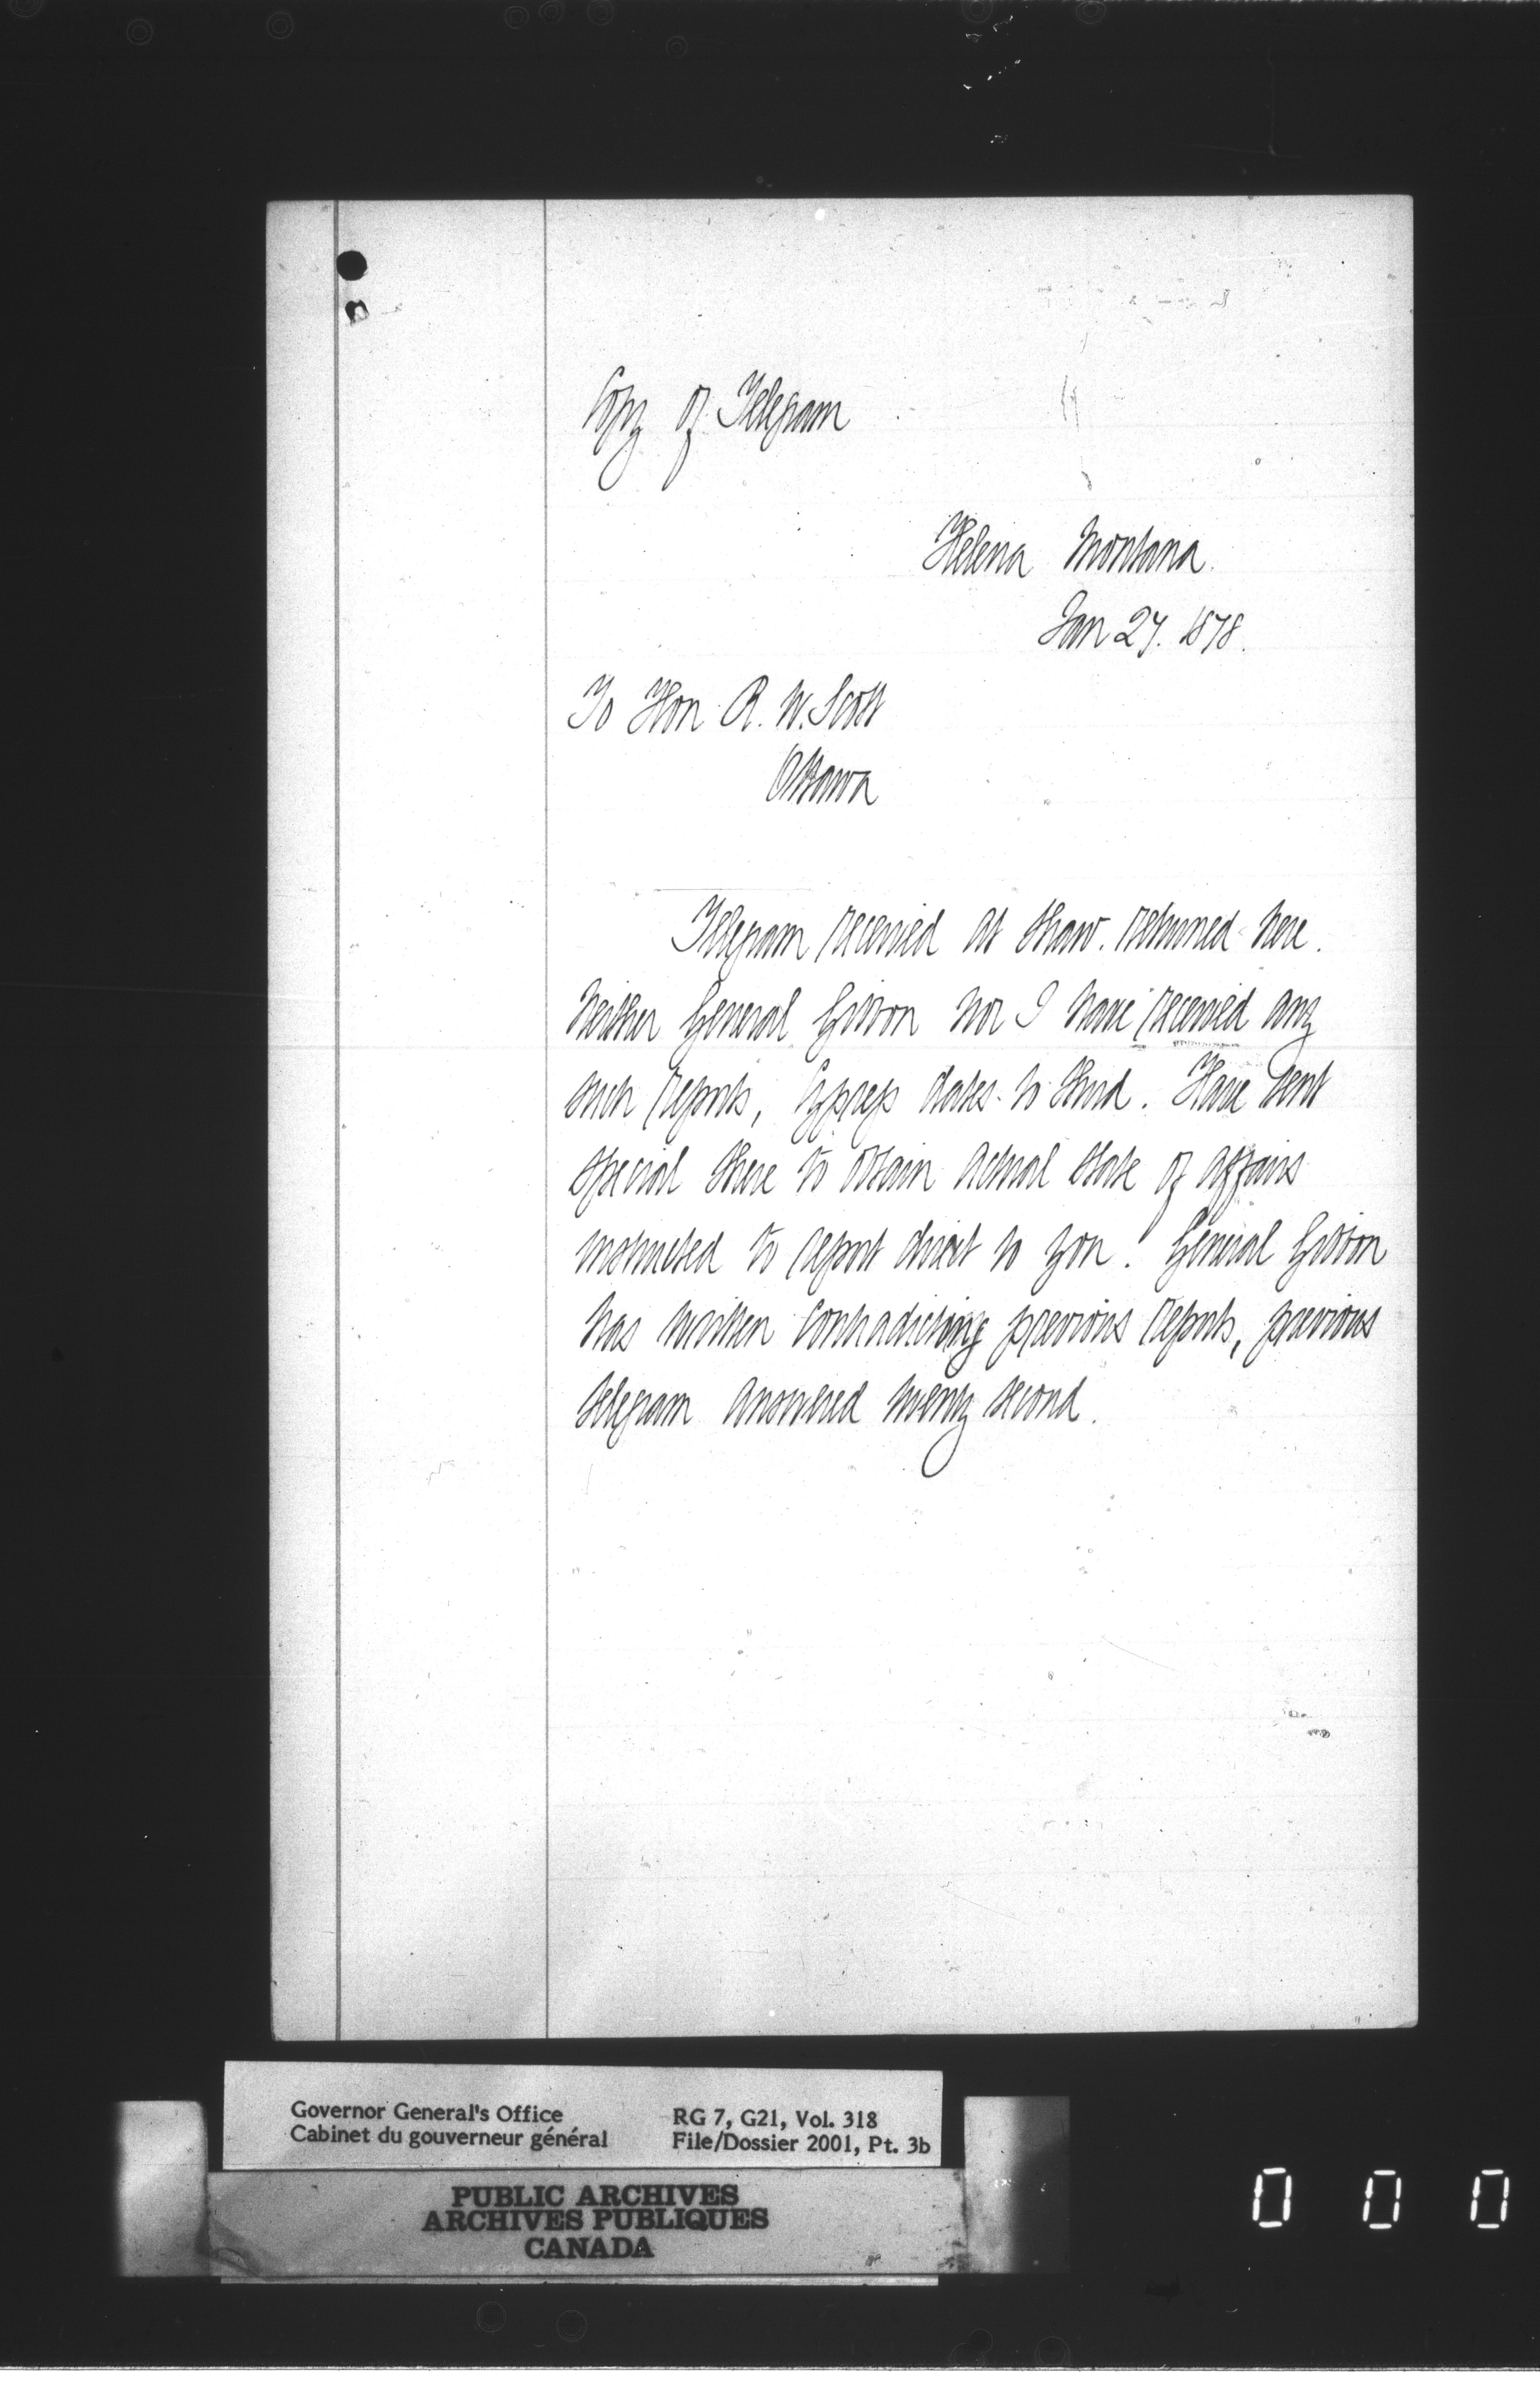 Copy of Telegram
Helena Montana.
Jan 27. 1878.
To Hon R. W. Scott
Ottawa
Telegram received at Shaw. returned here.
Neither General Gibbon nor I have received any
such reports, Cypress dates to third. Have sent
special there to obtain actual state of affairs
instructed to report direct to you. General Gibbon
has written contradicting previous reports, previous
telegram answered twenty second.
Governor General's Office
Cabinet du gouverneur général
RG 7, G21, Vol. 318
File/Dossier 2001, Pt. 3b
PUBLIC ARCHIVES
ARCHIVES PUBLIQUES
CANADA
0 0 0